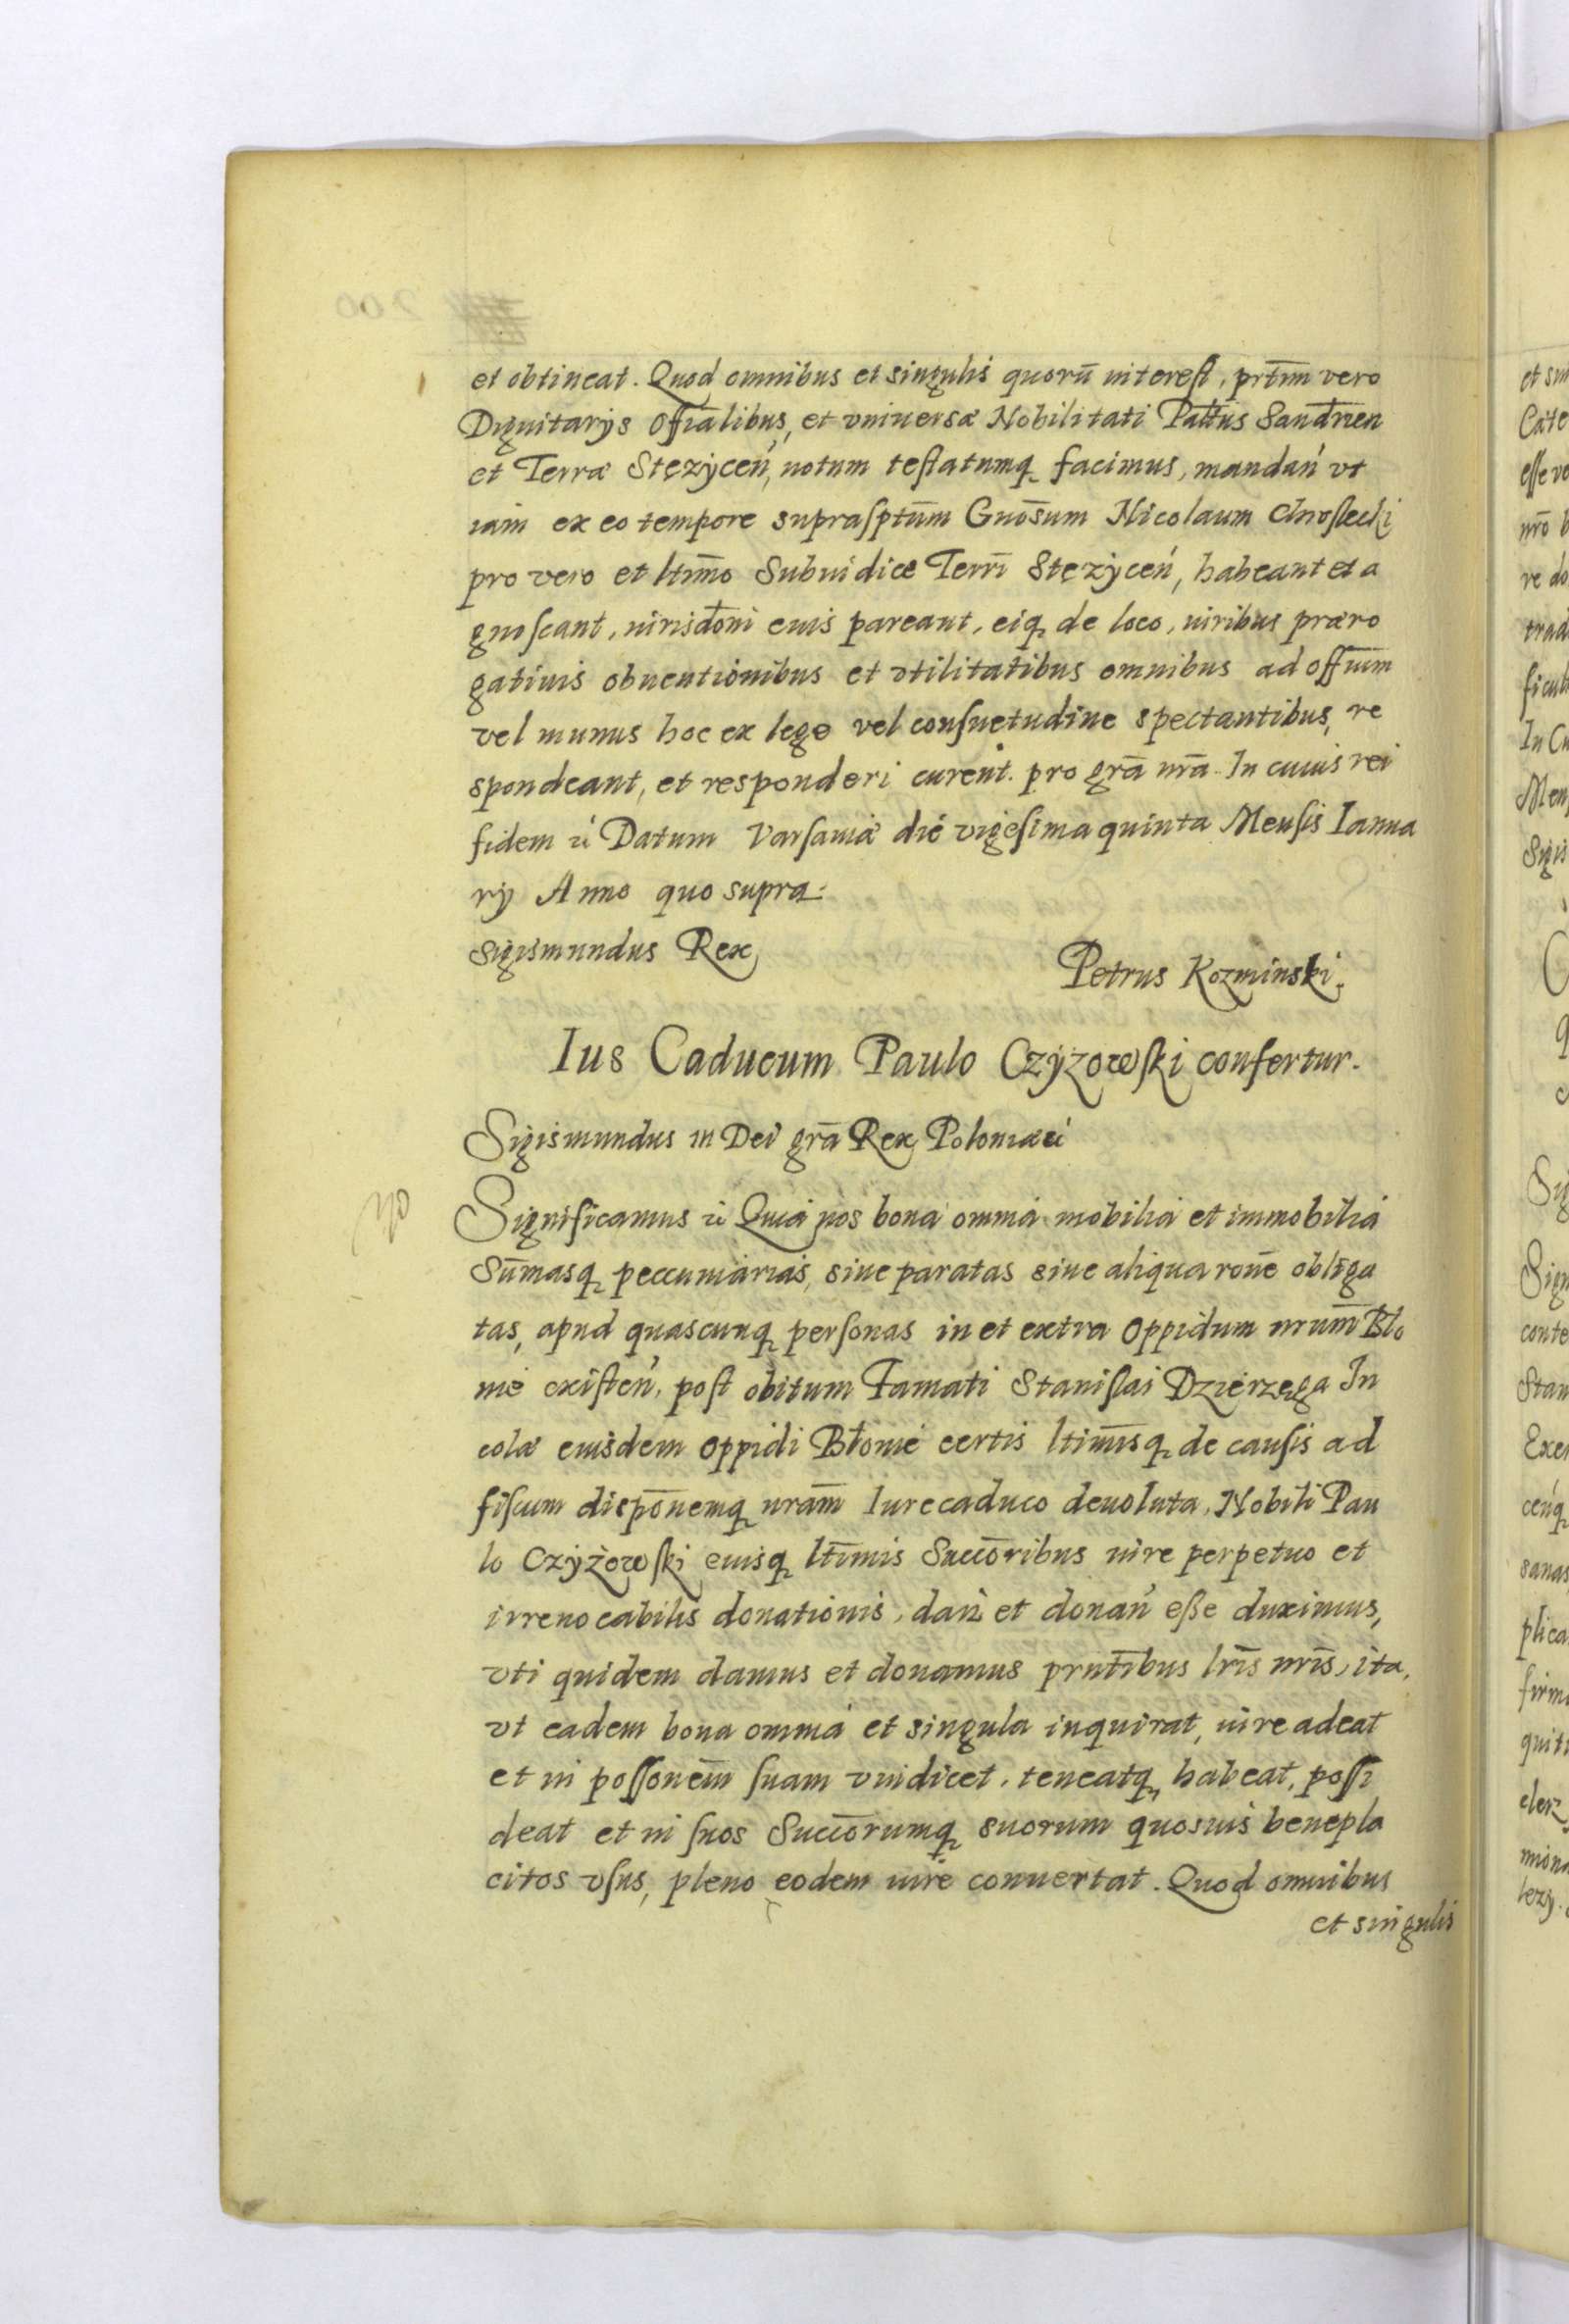 et obtineat. Quod omnibus et singulis quorū interest, prtīm vero
Dignitarijs Offīalibus, et vniuersæ Nobilitati Palt̄us Sandn̄en
et Terræ Stężyceń, notum testatumq facimus, mandań vt
iam ex eo tempore suprasptūm Gnōsum Nicolaum Chrostecki
pro vero et ltīmo Subiudice Terrī Stężyceń, habeant et a
gnoscant, iurisdōni eius pareant, eiq de loco, iuribus præro
gatiuis obuentionibus et vtilitatibus omnibus ad offīum
vel munus hoc ex lege vel consuetudine spectantibus, re
spondeant, et responderi curent. pro grā nrā. In cuius rei
fidem ć Datum Varsauiæ die vigesima quinta Mensis Ianua
rij Anno quo supra.
Sigismundus Rex
Petrus Kozminski.
Ius Caducum Paulo Czyżowski confertur.
Sigismundus III Dei grā Rex Poloniæ ć
Significamus ć Quia nos bona omnia mobilia et immobilia
Sūmasq peccuniarias, siue paratas siue aliqua ronē obliga
tas, apud quascunq personas in et extra Oppidum nrūm Blo
nie existeń, post obitum Famati Stanislai Dzierzęga In
colæ eiusdem Oppidi Błonie certis ltīmisq de causis ad
fiscum dispōnemq nrām Iure caduco deuoluta, Nobili Pau
lo Czyżowski eiusq ltīmis Succōribus iure perpetuo et
irreuocabilis donationis, dań et donań esse duximus,
vti quidem damus et donamus prntībus lrīs nrīs, ita,
vt eadem bona omnia et singula inquirat, iure adeat
et in possonēm suam vindicet, teneatq, habeat, possi
deat et in suos Succōrumq suorum quosuis benepla
citos vsus, pleno eodem iure conuertat. Quod omnibus
et singulis